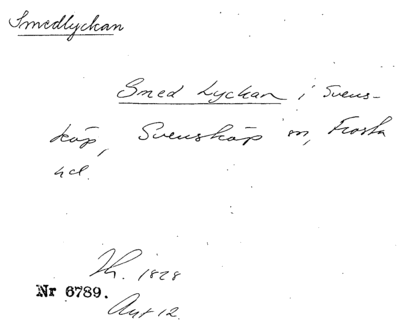 Smedlyckan
Smed Lyckan i Svens-
köp, Svensköp sn, Frosta
hd.
Th. 1828
Nr 6789.
Avt 12.